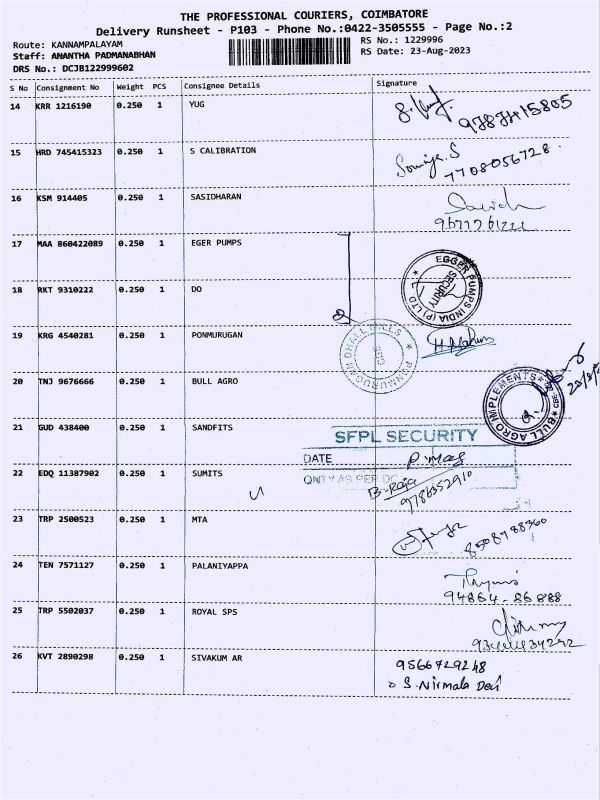 THE PROFESSIONAL COURIERS, COIMBATORE
Delivery Runsheet - P103 - Phone No.:0422-3505555 - Page No.:2
Route: KANNAMPALAYAM
RS No.: 1229996
Staff: ANANTHA PADMANABHAN
RS Date: 23-Aug-2023
DRS No.: DCJB122999602
S No Consignment No Weight PCS Consignee Details Signature
14 KRR 1216190 0.250 1 YUG
15 HRD 745415323 0.250 1 S CALIBRATION
Sowmiya.S
7708056728
16 KSM 914405 0.250 1 SASIDHARAN
17 MAA 860422089 0.250 1 EGER PUMPS
EGGER PUMPS INDIA (P) LTD
SECURITY
18 RKT 9310222 0.250 1 DO
19 KRG 4540281 0.250 1 PONMURUGAN
PONMURUGAN DHALL MILLS
20 TNJ 9676666 0.250 1 BULL AGRO
BULL AGRO IMPLEMENTS
CBE
21 GUD 438400 0.250 1 SANDFITS
SFPL SECURITY
DATE
ONLY AS PER DC
22 EDQ 11387902 0.250 1 SUMITS
B-Raja
9786352910
23 TRP 2500523 0.250 1 MTA
24 TEN 7571127 0.250 1 PALANIYAPPA
94864-86888
25 TRP 5502037 0.250 1 ROYAL SPS
26 KVT 2890298 0.250 1 SIVAKUM AR
9566729248
S. Nirmala Devi